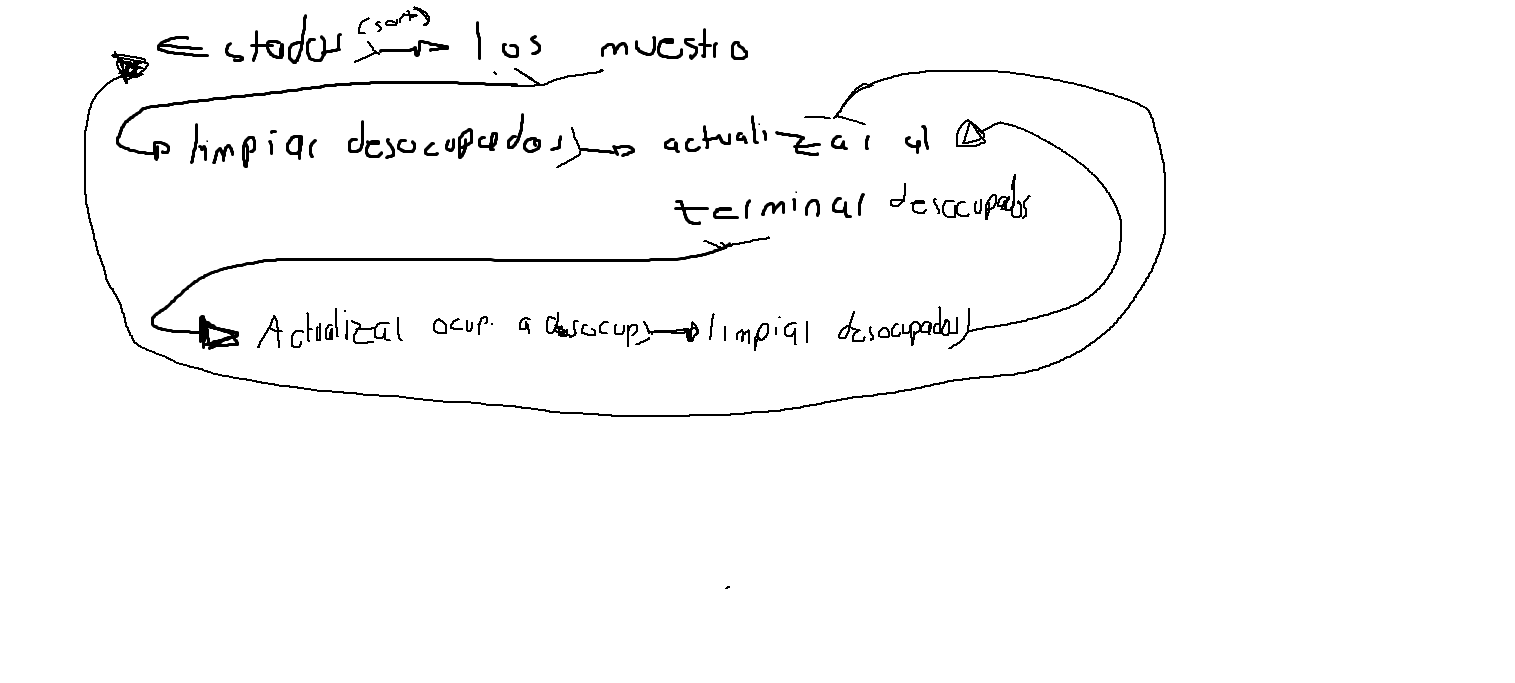 Estados (sort) los muestro
limpiar desocupados actualizar al
terminar desocupados
Actualizar ocup. a desocup limpiar desocupados